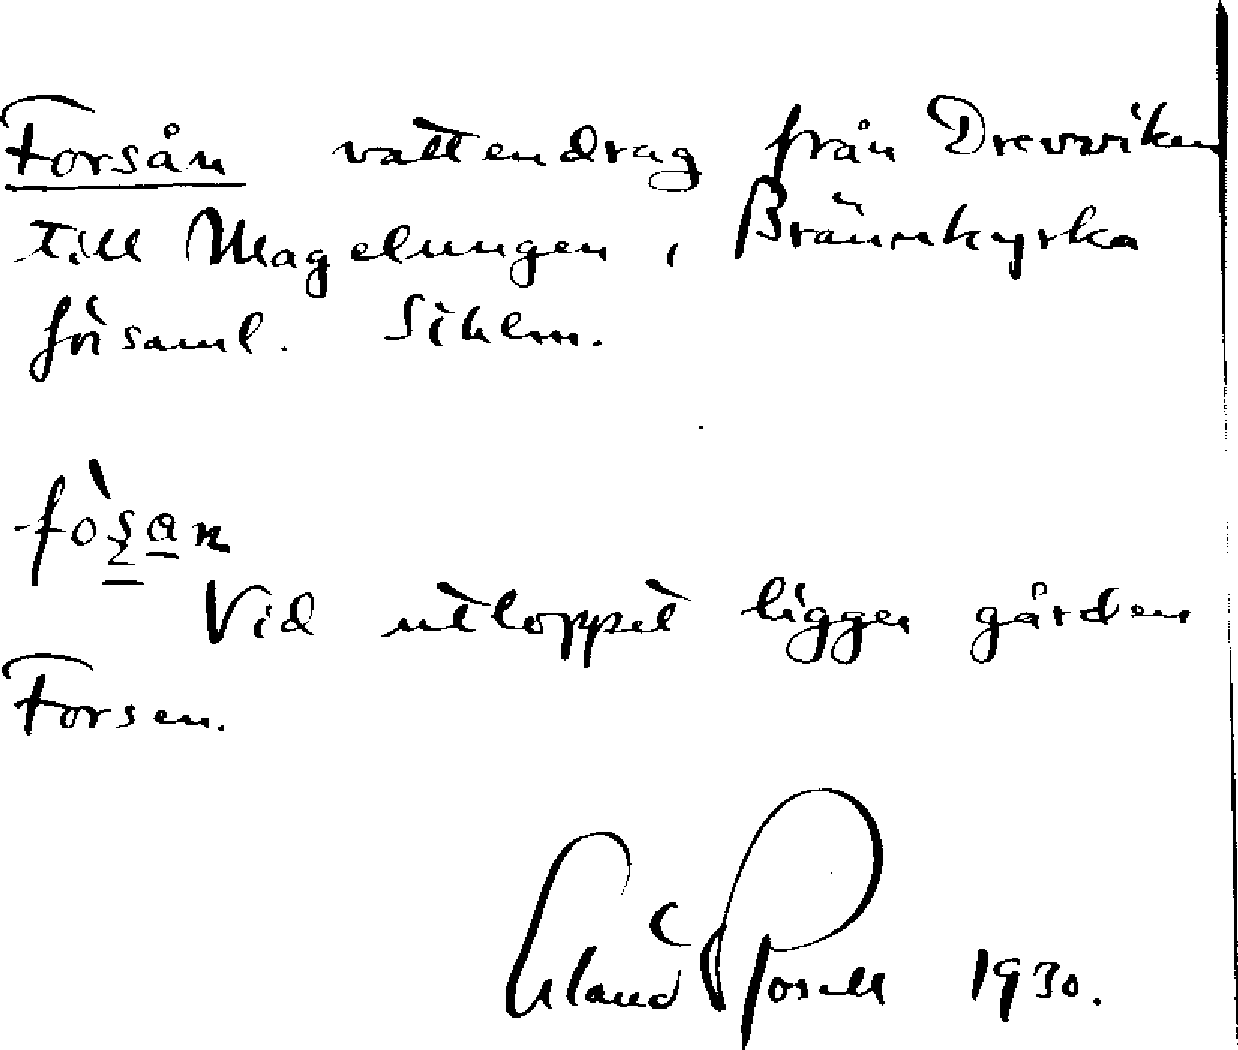 Forsån vattendrag från Drevviken
till Magelungen, Brännkyrka
församl. Sthlm.
Vid utloppet ligger gården
Forsen.
Erland Rosell 1930.